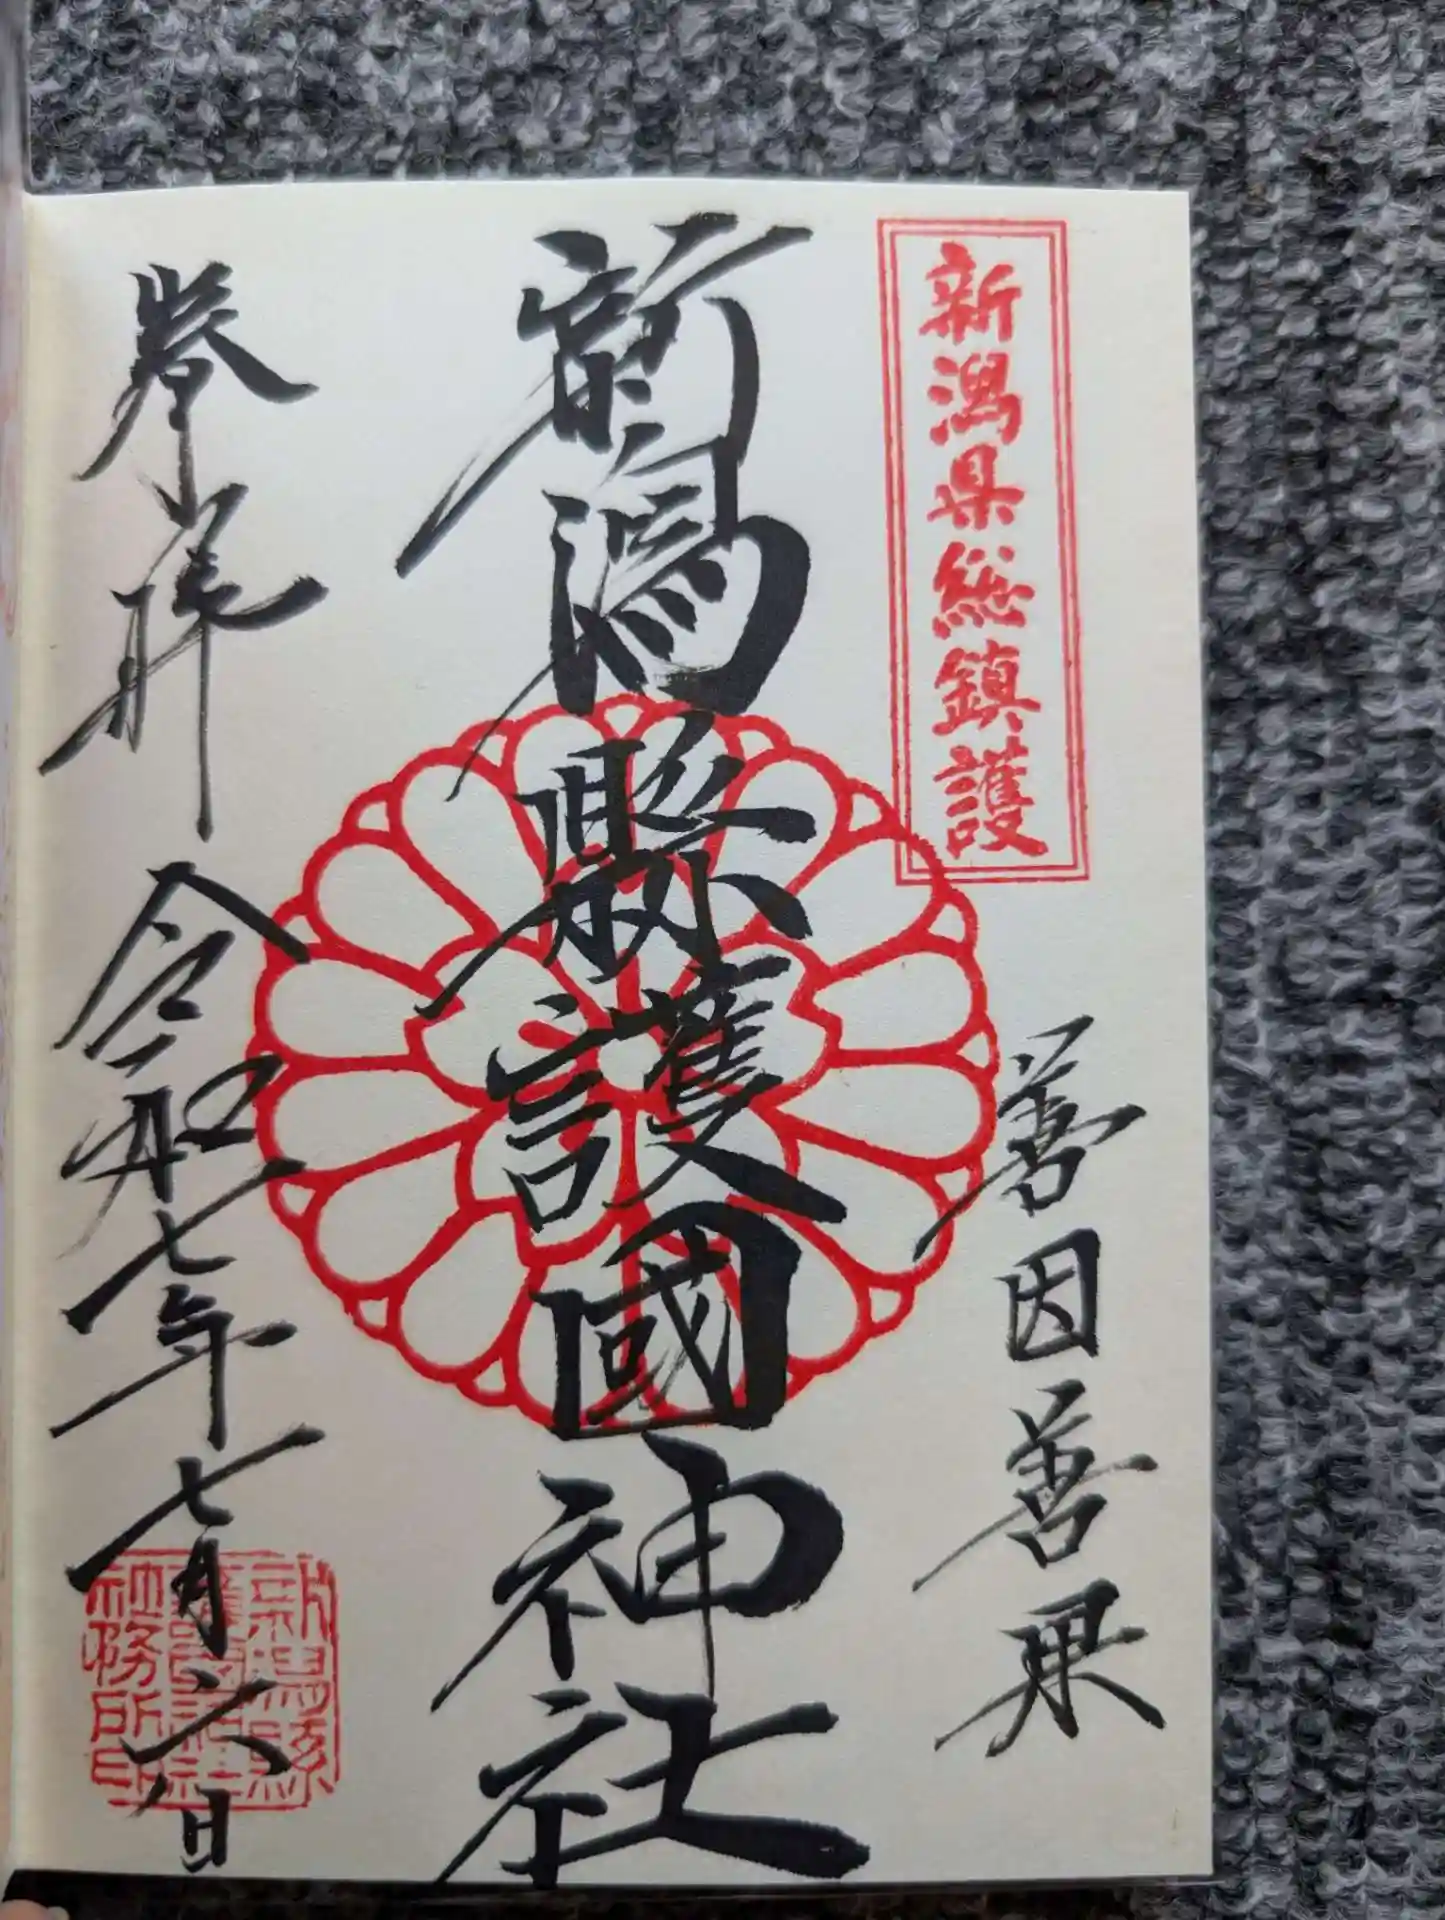 新潟県総鎮護
善因善果
新潟縣護國神社
奉拝
令和七年七月六日
新潟縣
護國神社
社務所印